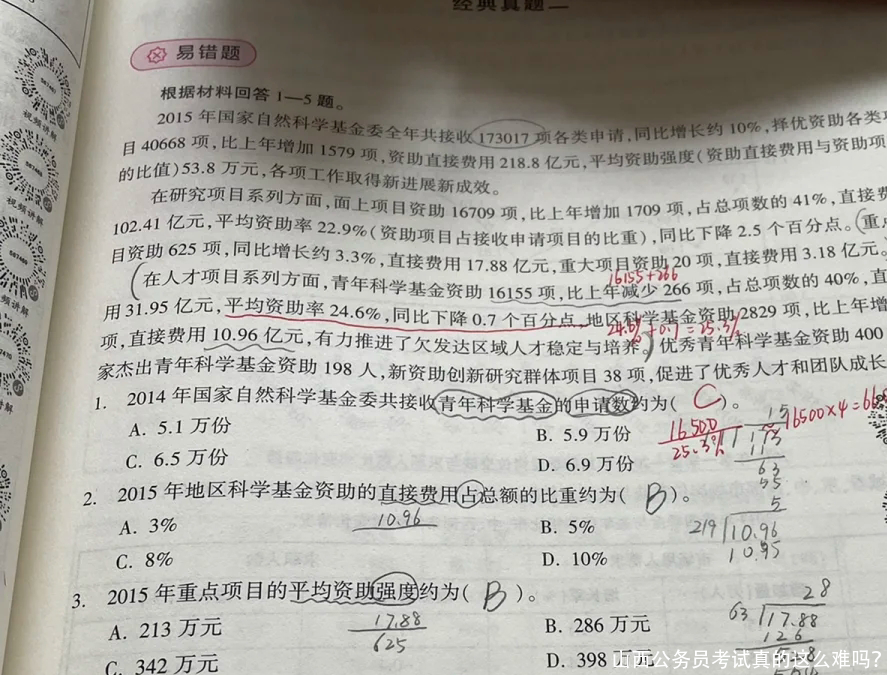 经典真题一
易错题
根据材料回答1—5题。
2015年国家自然科学基金委全年共接收173017项各类申请,同比增长约10%,择优资助各类
目40668项,比上年增加1579项,资助直接费用218.8亿元,平均资助强度(资助直接费用与资助项
的比值)53.8万元,各项工作取得新进展新成效。
在研究项目系列方面,面上项目资助16709项,比上年增加1709项,占总项数的41%,直接费
102.41亿元,平均资助率22.9%(资助项目占接收申请项目的比重),同比下降2.5个百分点。重
目资助625项,同比增长约3.3%,直接费用17.88亿元,重大项目资助20项,直接费用3.18亿元。
16155+266
在人才项目系列方面,青年科学基金资助16155项,比上年减少266项,占总项数的40%,直
用31.95亿元,平均资助率24.6%,同比下降0.7个百分点。地区科学基金资助2829项,比上年增
24.6%+0.7=25.3%
项,直接费用10.96亿元,有力推进了欠发达区域人才稳定与培养。优秀青年科学基金资助400
家杰出青年科学基金资助198人,新资助创新研究群体项目38项,促进了优秀人才和团队成长
1. 2014年国家自然科学基金委共接收青年科学基金的申请数约为( C )。
A. 5.1万份
B. 5.9万份
C. 6.5万份
D. 6.9万份
16500
25.3%
≈16500×4=66
2. 2015年地区科学基金资助的直接费用占总额的比重约为( B )。
A. 3%
10.96
B. 5%
C. 8%
D. 10%
5
219 10.96
10.95
3. 2015年重点项目的平均资助强度约为( B )。
A. 213万元
17.88
625
B. 286万元
C. 342万元
D. 398万元
28
63 17.88
126
山西公务员考试真的这么难吗？